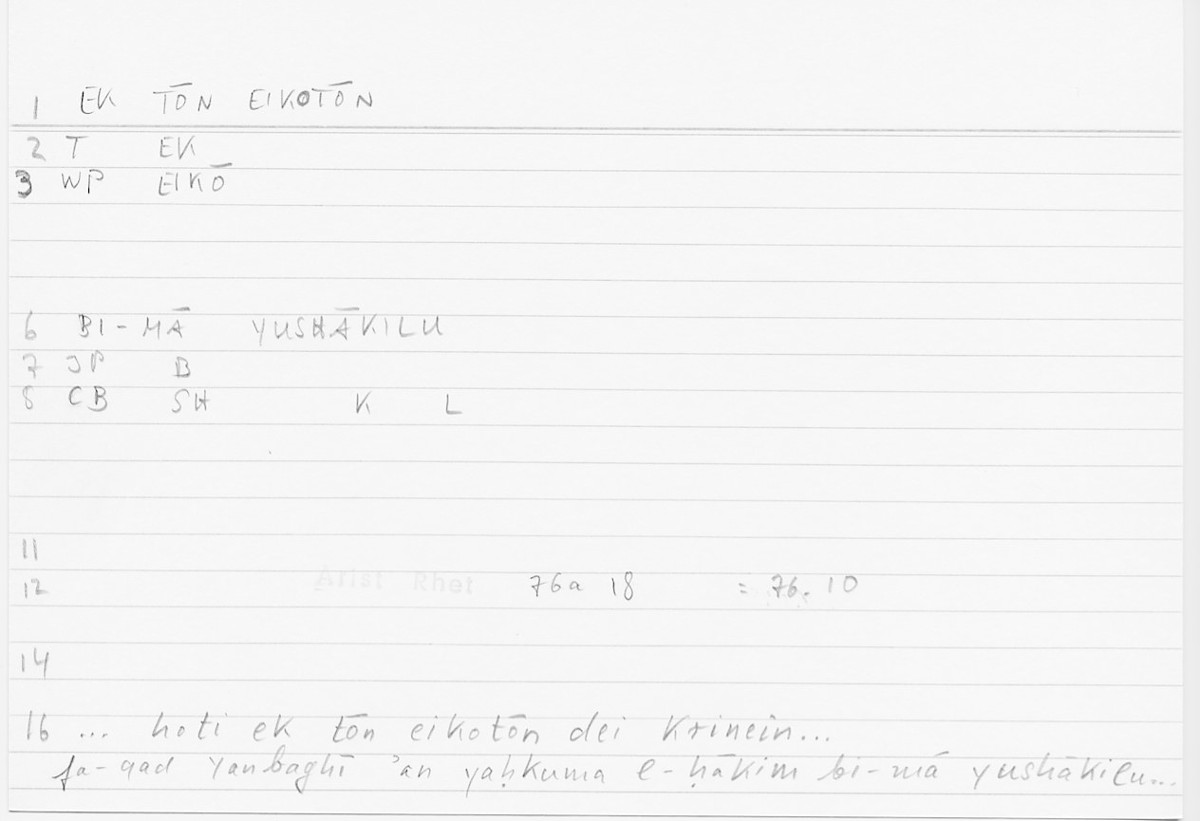 1 EK TŌN EIKOTŌN
2 T EK
3 WP EIKŌ
6 BI-MĀ YUSHĀKILU
7 JP B
8 CB SH K L
11
12 Arist Rhet 76a 18 = 76.10
14
16 ... hoti ek tōn eikotōn dei krinein...
fa-qad yanbaghī ʾan yaḥkuma l-ḥākim bi-mā yushākilu...